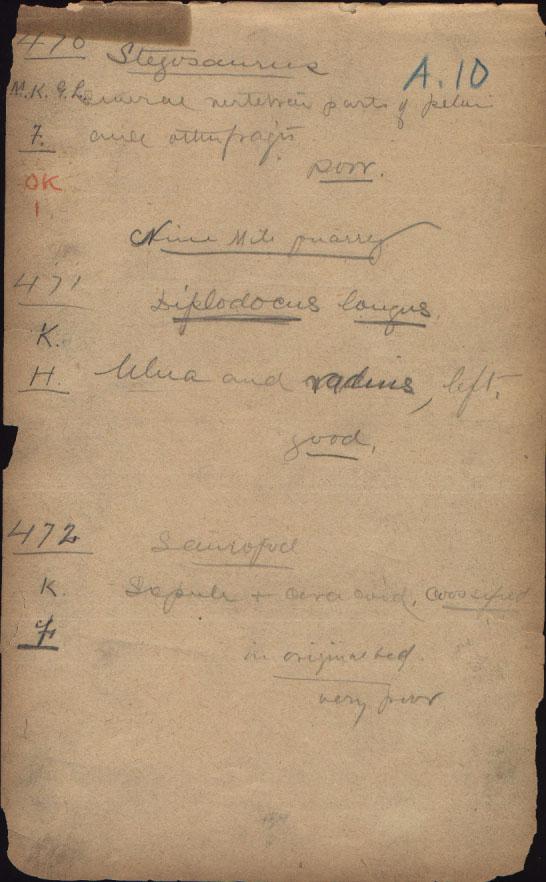 470 Stegosaurus A.10
M.K.G.L. Several vertebrae parts of pelvis
F. and other frag'ts
poor.
OK
1
Nine Mile quarry
471
Diplodocus longus.
K.
H. Ulna and radius, left.
good.
472 Sauropod
K. Scapula + coracoid,
F.
in original bed.
very poor